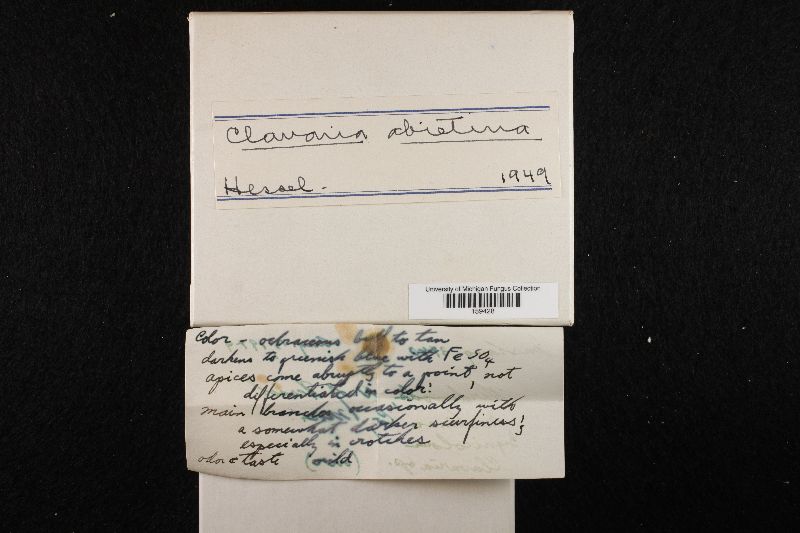 Clavaria abietina
Hessel. 1949
University of Michigan Fungus Collection
159428
Color - ochraceous buff to tan
darkens to greenish blue with FeSO4
apices come abruptly to a point, not
differentiated in color.
main branches occasionally with
a somewhat darker scurfiness,
especially in crotches
odor & taste mild